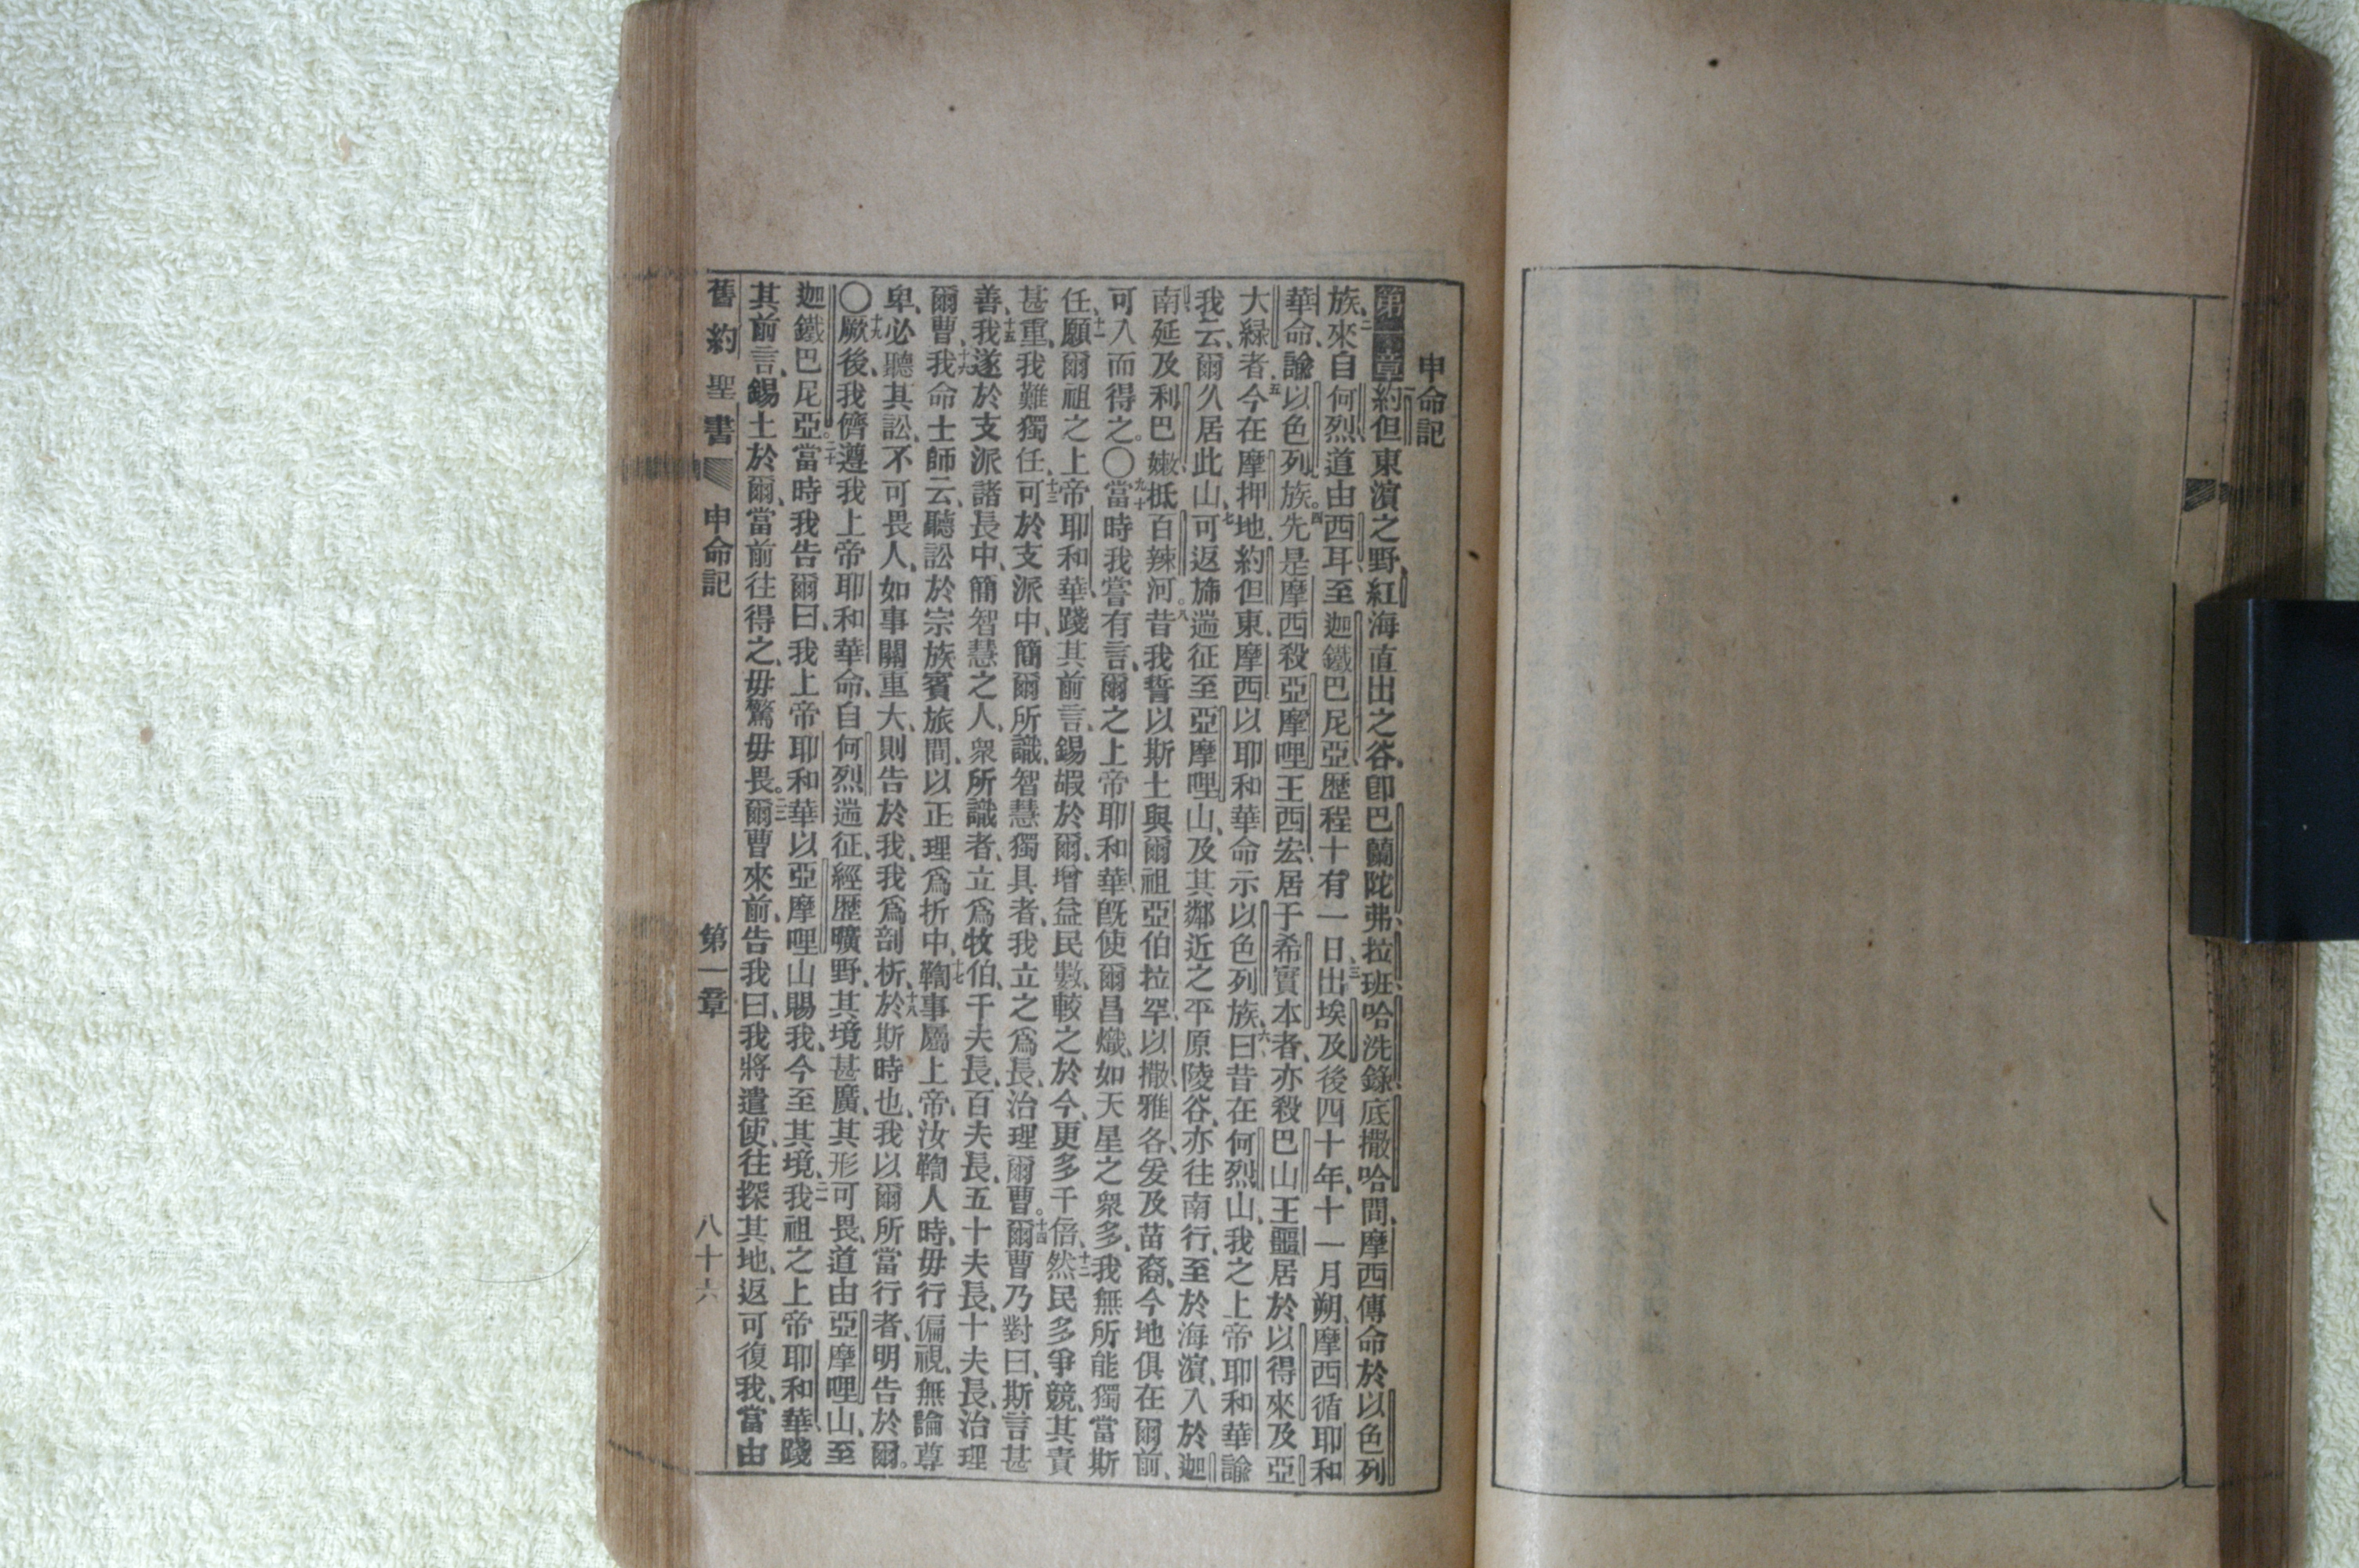 申命記
第一章約但東濱之野、紅海直出之谷、卽巴蘭陀弗拉班哈洗錄底撒哈間、摩西傳命於以色列
族、二來自何烈道由西耳、至迦鐵巴尼亞歷程十有一日、三出埃及後四十年、十一月朔、摩西循耶和
華命、諭以色列族。四先是摩西殺亞摩哩王西宏、居于希實本者、亦殺巴山王噩居於以得來及亞
大綠者、五今在摩押地、約但東、摩西以耶和華命示以色列族、六曰昔在何烈山、我之上帝耶和華諭
我云、爾久居此山、七可返斾遄征至亞摩哩山、及其鄰近之平原陵谷、亦往南行、至於海濱、入於迦
南延及利巴嫩抵百辣河。八昔我誓以斯土與爾祖亞伯拉罕、以撒、雅各、爰及苗裔、今地俱在爾前、
可入而得之。〇九十當時我嘗有言、爾之上帝耶和華、旣使爾昌熾、如天星之衆多、我無所能獨當斯
任、十一願爾祖之上帝耶和華、踐其前言、錫嘏於爾、增益民數、較之於今、更多千倍、十二然民多爭競、其責
甚重、我難獨任、十三可於支派中、簡爾所識、智慧獨具者、我立之爲長、治理爾曹。十四爾曹乃對曰、斯言甚
善、十五我遂於支派諸長中、簡智慧之人、衆所識者、立爲牧伯、千夫長、百夫長、五十夫長、十夫長、治理
爾曹、十六我命士師云、聽訟於宗族賓旅間、以正理爲折中、十七鞫事屬上帝、汝鞫人時、毋行偏視、無論尊
卑、必聽其訟、不可畏人、如事關重大、則告於我、我爲剖析、十八於斯時也、我以爾所當行者、明告於爾。
〇十九厥後、我儕遵我上帝耶和華命、自何烈遄征、經歷曠野、其境甚廣、其形可畏、道由亞摩哩山、至
迦鐵巴尼亞。二十當時我告爾曰、我上帝耶和華以亞摩哩山賜我、今至其境、我祖之上帝耶和華、踐
其前言、錫土於爾、當前往得之、毋驚毋畏。爾曹來前、告我曰、我將遣使、往探其地、返可復我、當由
舊約聖書 申命記 第一章 八十六